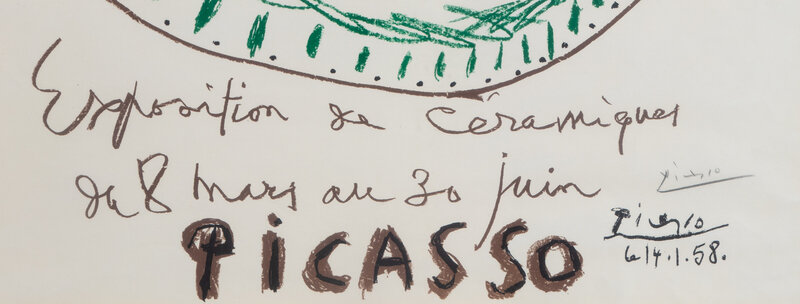 Exposition de céramiques
du 8 mars au 30 juin
Picasso
PICASSO
Picasso
le 14.1.58.